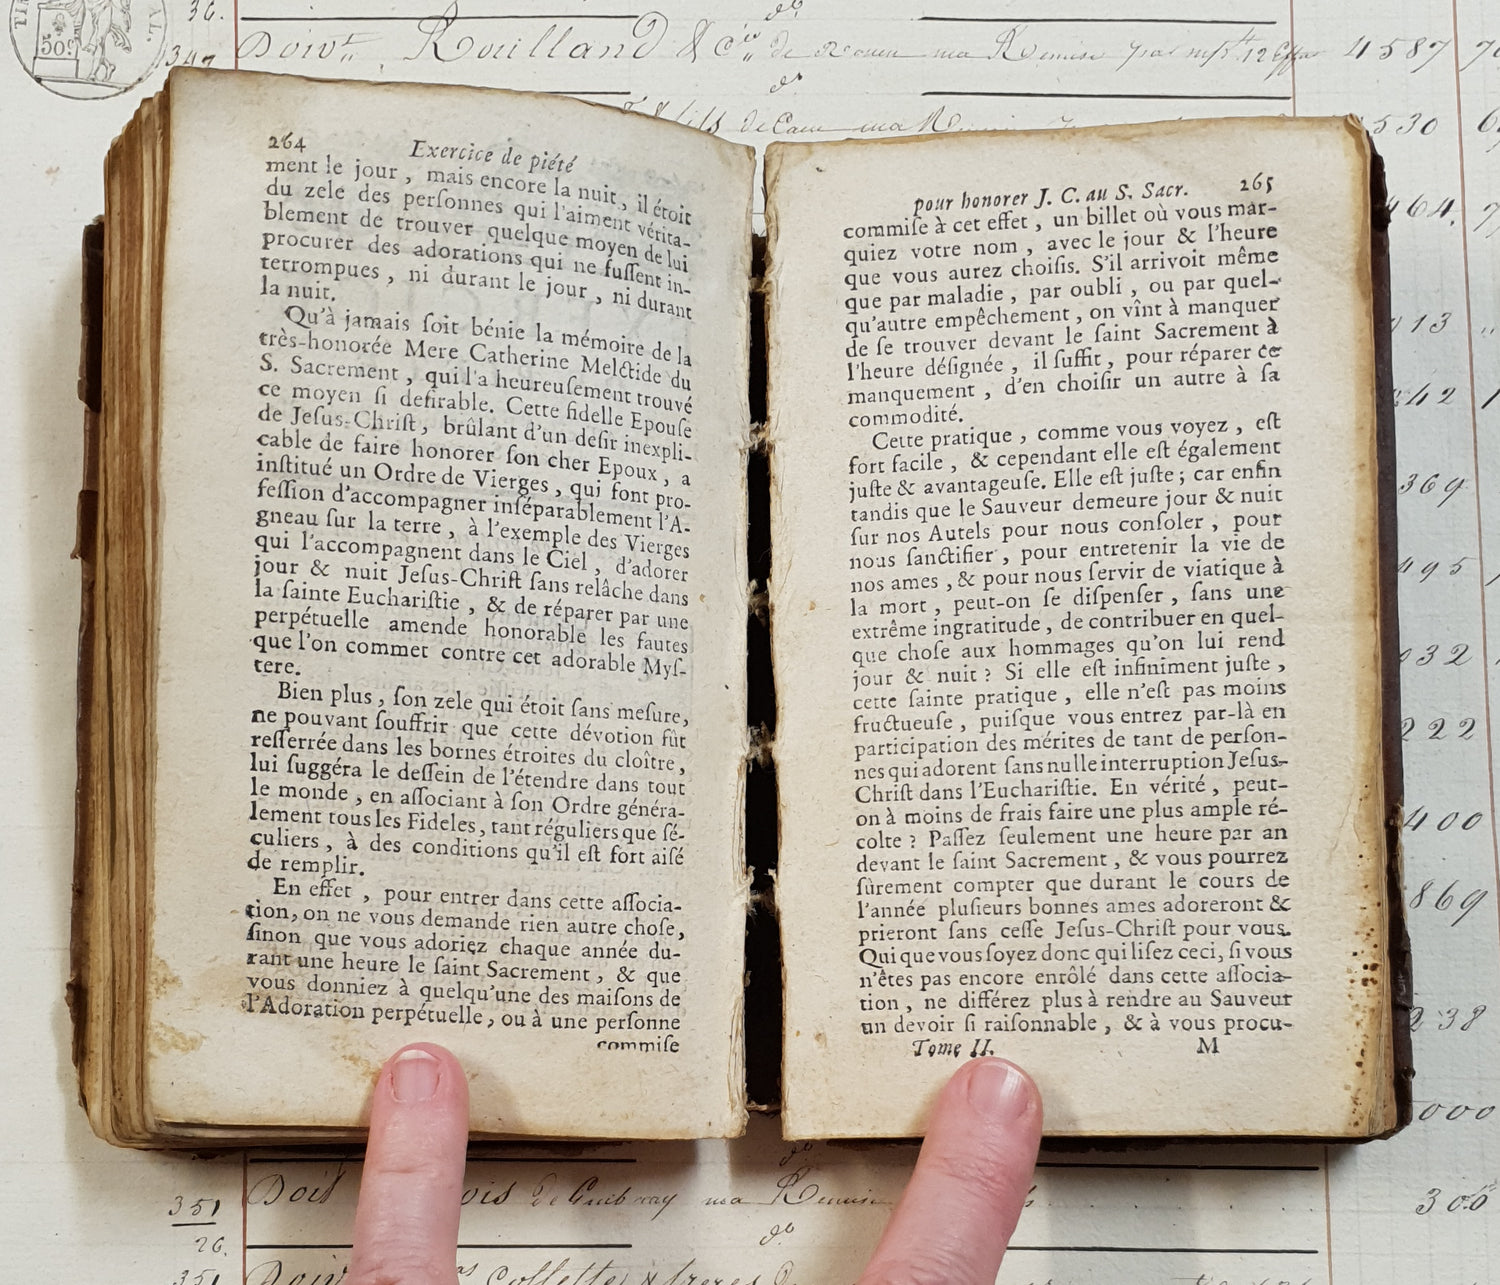 36.
do
347
Doivt. Rouilland & Cie de Rouen ma Remise
4587
50c
fils de Caen ma
530
264 Exercice de piété
ment le jour, mais encore la nuit, il étoit
du zele des perſonnes qui l'aiment vérita-
blement de trouver quelque moyen de lui
procurer des adorations qui ne fuſſent in-
terrompues, ni durant le jour, ni durant
la nuit.
Qu'à jamais ſoit bénie la mémoire de la
très-honorée Mere Catherine Melctide du
S. Sacrement, qui l'a heureuſement trouvé
ce moyen ſi deſirable. Cette fidelle Epouſe
de Jeſus-Chriſt, brûlant d'un deſir inexpli-
cable de faire honorer ſon cher Epoux, a
inſtitué un Ordre de Vierges, qui font pro-
feſſion d'accompagner inſéparablement l'A-
gneau ſur la terre, à l'exemple des Vierges
qui l'accompagnent dans le Ciel, d'adorer
jour & nuit Jeſus-Chriſt ſans relâche dans
la ſainte Euchariſtie, & de réparer par une
perpétuelle amende honorable les fautes
que l'on commet contre cet adorable Myſ-
tere.
Bien plus, ſon zele qui étoit ſans meſure,
ne pouvant ſouffrir que cette dévotion fût
reſſerrée dans les bornes étroites du cloître,
lui ſuggéra le deſſein de l'étendre dans tout
le monde, en aſſociant à ſon Ordre généra-
lement tous les Fideles, tant réguliers que ſé-
culiers, à des conditions qu'il eſt fort aiſé
de remplir.
En effet, pour entrer dans cette aſſocia-
tion, on ne vous demande rien autre choſe,
ſinon que vous adoriez chaque année du-
rant une heure le ſaint Sacrement, & que
vous donniez à quelqu'une des maiſons de
l'Adoration perpétuelle, ou à une perſonne
commiſe
pour honorer J. C. au S. Sacr. 265
commiſe à cet effet, un billet où vous mar-
quiez votre nom, avec le jour & l'heure
que vous aurez choiſis. S'il arrivoit même
que par maladie, par oubli, ou par quel-
qu'autre empêchement, on vînt à manquer
de ſe trouver devant le ſaint Sacrement à
l'heure déſignée, il ſuffit, pour réparer ce
manquement, d'en choiſir un autre à ſa
commodité.
Cette pratique, comme vous voyez, eſt
fort facile, & cependant elle eſt également
juſte & avantageuſe. Elle eſt juſte; car enfin
tandis que le Sauveur demeure jour & nuit
ſur nos Autels pour nous conſoler, pour
nous ſanctifier, pour entretenir la vie de
nos ames, & pour nous ſervir de viatique à
la mort, peut-on ſe diſpenſer, ſans une
extrême ingratitude, de contribuer en quel-
que choſe aux hommages qu'on lui rend
jour & nuit? Si elle eſt infiniment juſte,
cette ſainte pratique, elle n'eſt pas moins
fructueuſe, puiſque vous entrez par-là en
participation des mérites de tant de perſon-
nes qui adorent ſans nulle interruption Jeſus-
Chriſt dans l'Euchariſtie. En vérité, peut-
on à moins de frais faire une plus ample ré-
colte? Paſſez ſeulement une heure par an
devant le ſaint Sacrement, & vous pourrez
ſûrement compter que durant le cours de
l'année pluſieurs bonnes ames adoreront &
prieront ſans ceſſe Jeſus-Chriſt pour vous.
Qui que vous ſoyez donc qui liſez ceci, ſi vous
n'êtes pas encore enrôlé dans cette aſſocia-
tion, ne différez plus à rendre au Sauveur
un devoir ſi raiſonnable, & à vous procu-
Tome II. M
464
013
42
369
495
032
222
400
869
238
000
do
351
Doit ma Remise
300
26.
do
351
Doiv Collette & freres